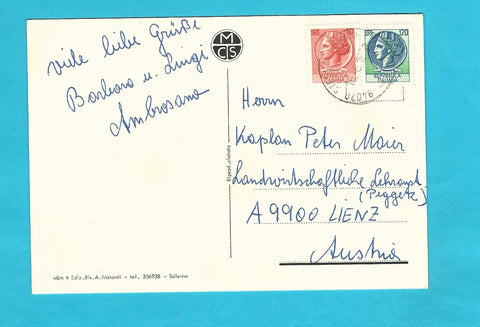 viele liebe Grüße
Barbara u. Luigi
Ambrosano
M
C S
120
84046
Herrn
Kaplan Peter Maier
Landwirtschaftliche Lehranst
(Peggetz)
A 9900 LIENZ
Austria
Riprod. vietata
MBA 9 Ediz. Ris. A. Matonti - tel. 356938 - Salerno